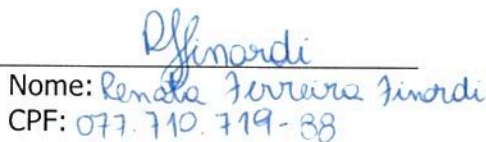 Rffinardi
Nome: Renata Ferreira Finardi
CPF: 077.710.719-88